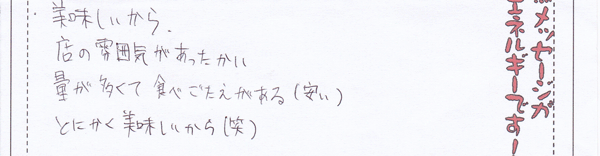 美味しいから.
店の雰囲気があったかい
量が多くて食べごたえがある(安い)
とにかく美味しいから(笑)
メッセージが
エネルギーです!